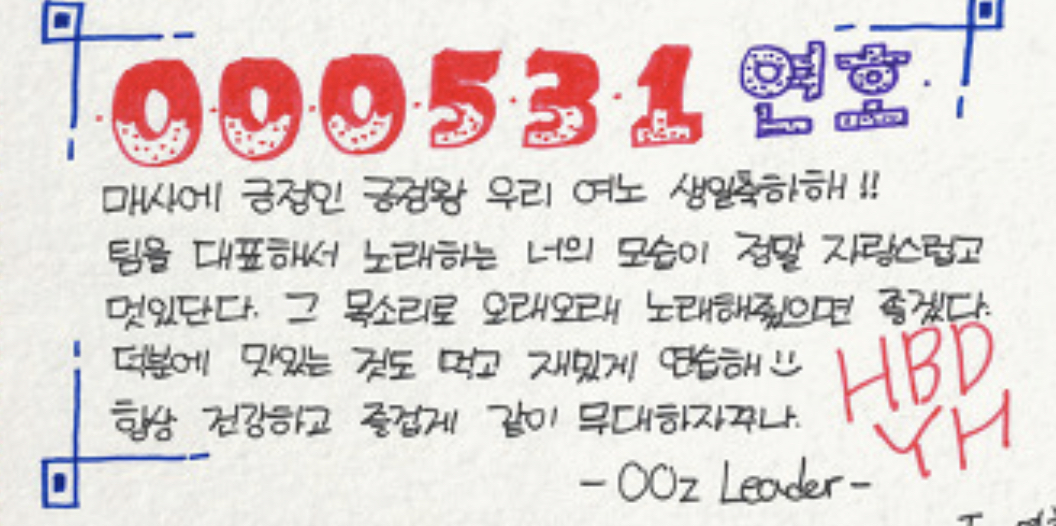 000531 연호
매사에 긍정인 긍정왕 우리 여노 생일축하해!!
팀을 대표해서 노래하는 너의 모습이 정말 자랑스럽고
멋있단다. 그 목소리로 오래오래 노래해줬으면 좋겠다.
덕분에 맛있는 것도 먹고 재밌게 연습해
항상 건강하고 즐겁게 같이 무대하자꾸나.
HBD
YH
- OOz Leader -